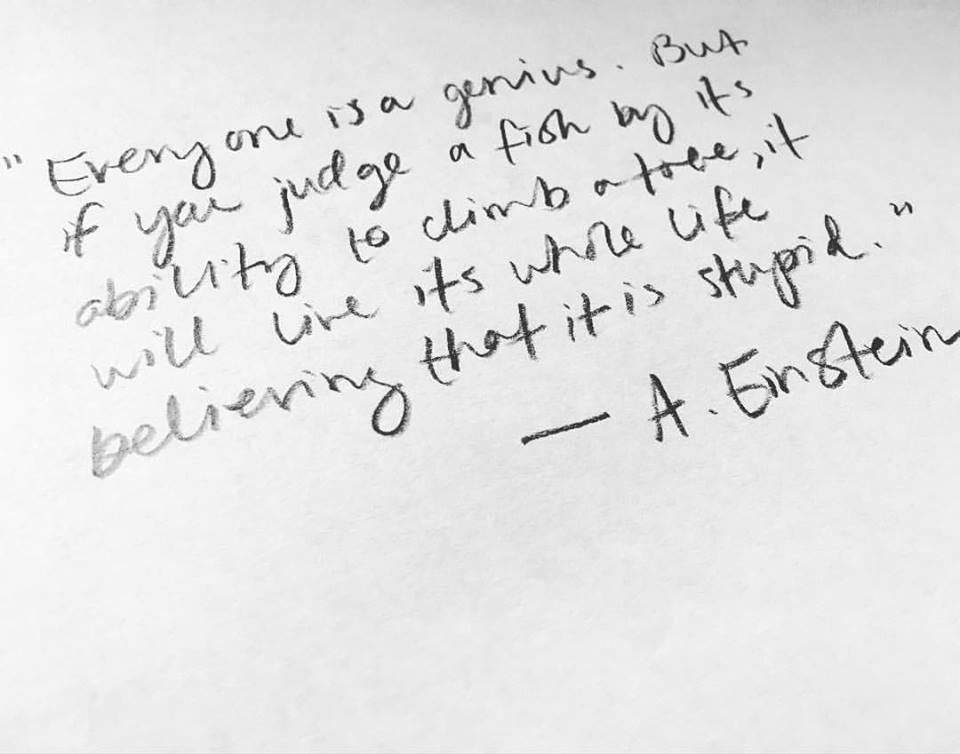 "Everyone is a genius. But
if you judge a fish by its
ability to climb a tree, it
will live its whole life
believing that it is stupid."
— A. Einstein